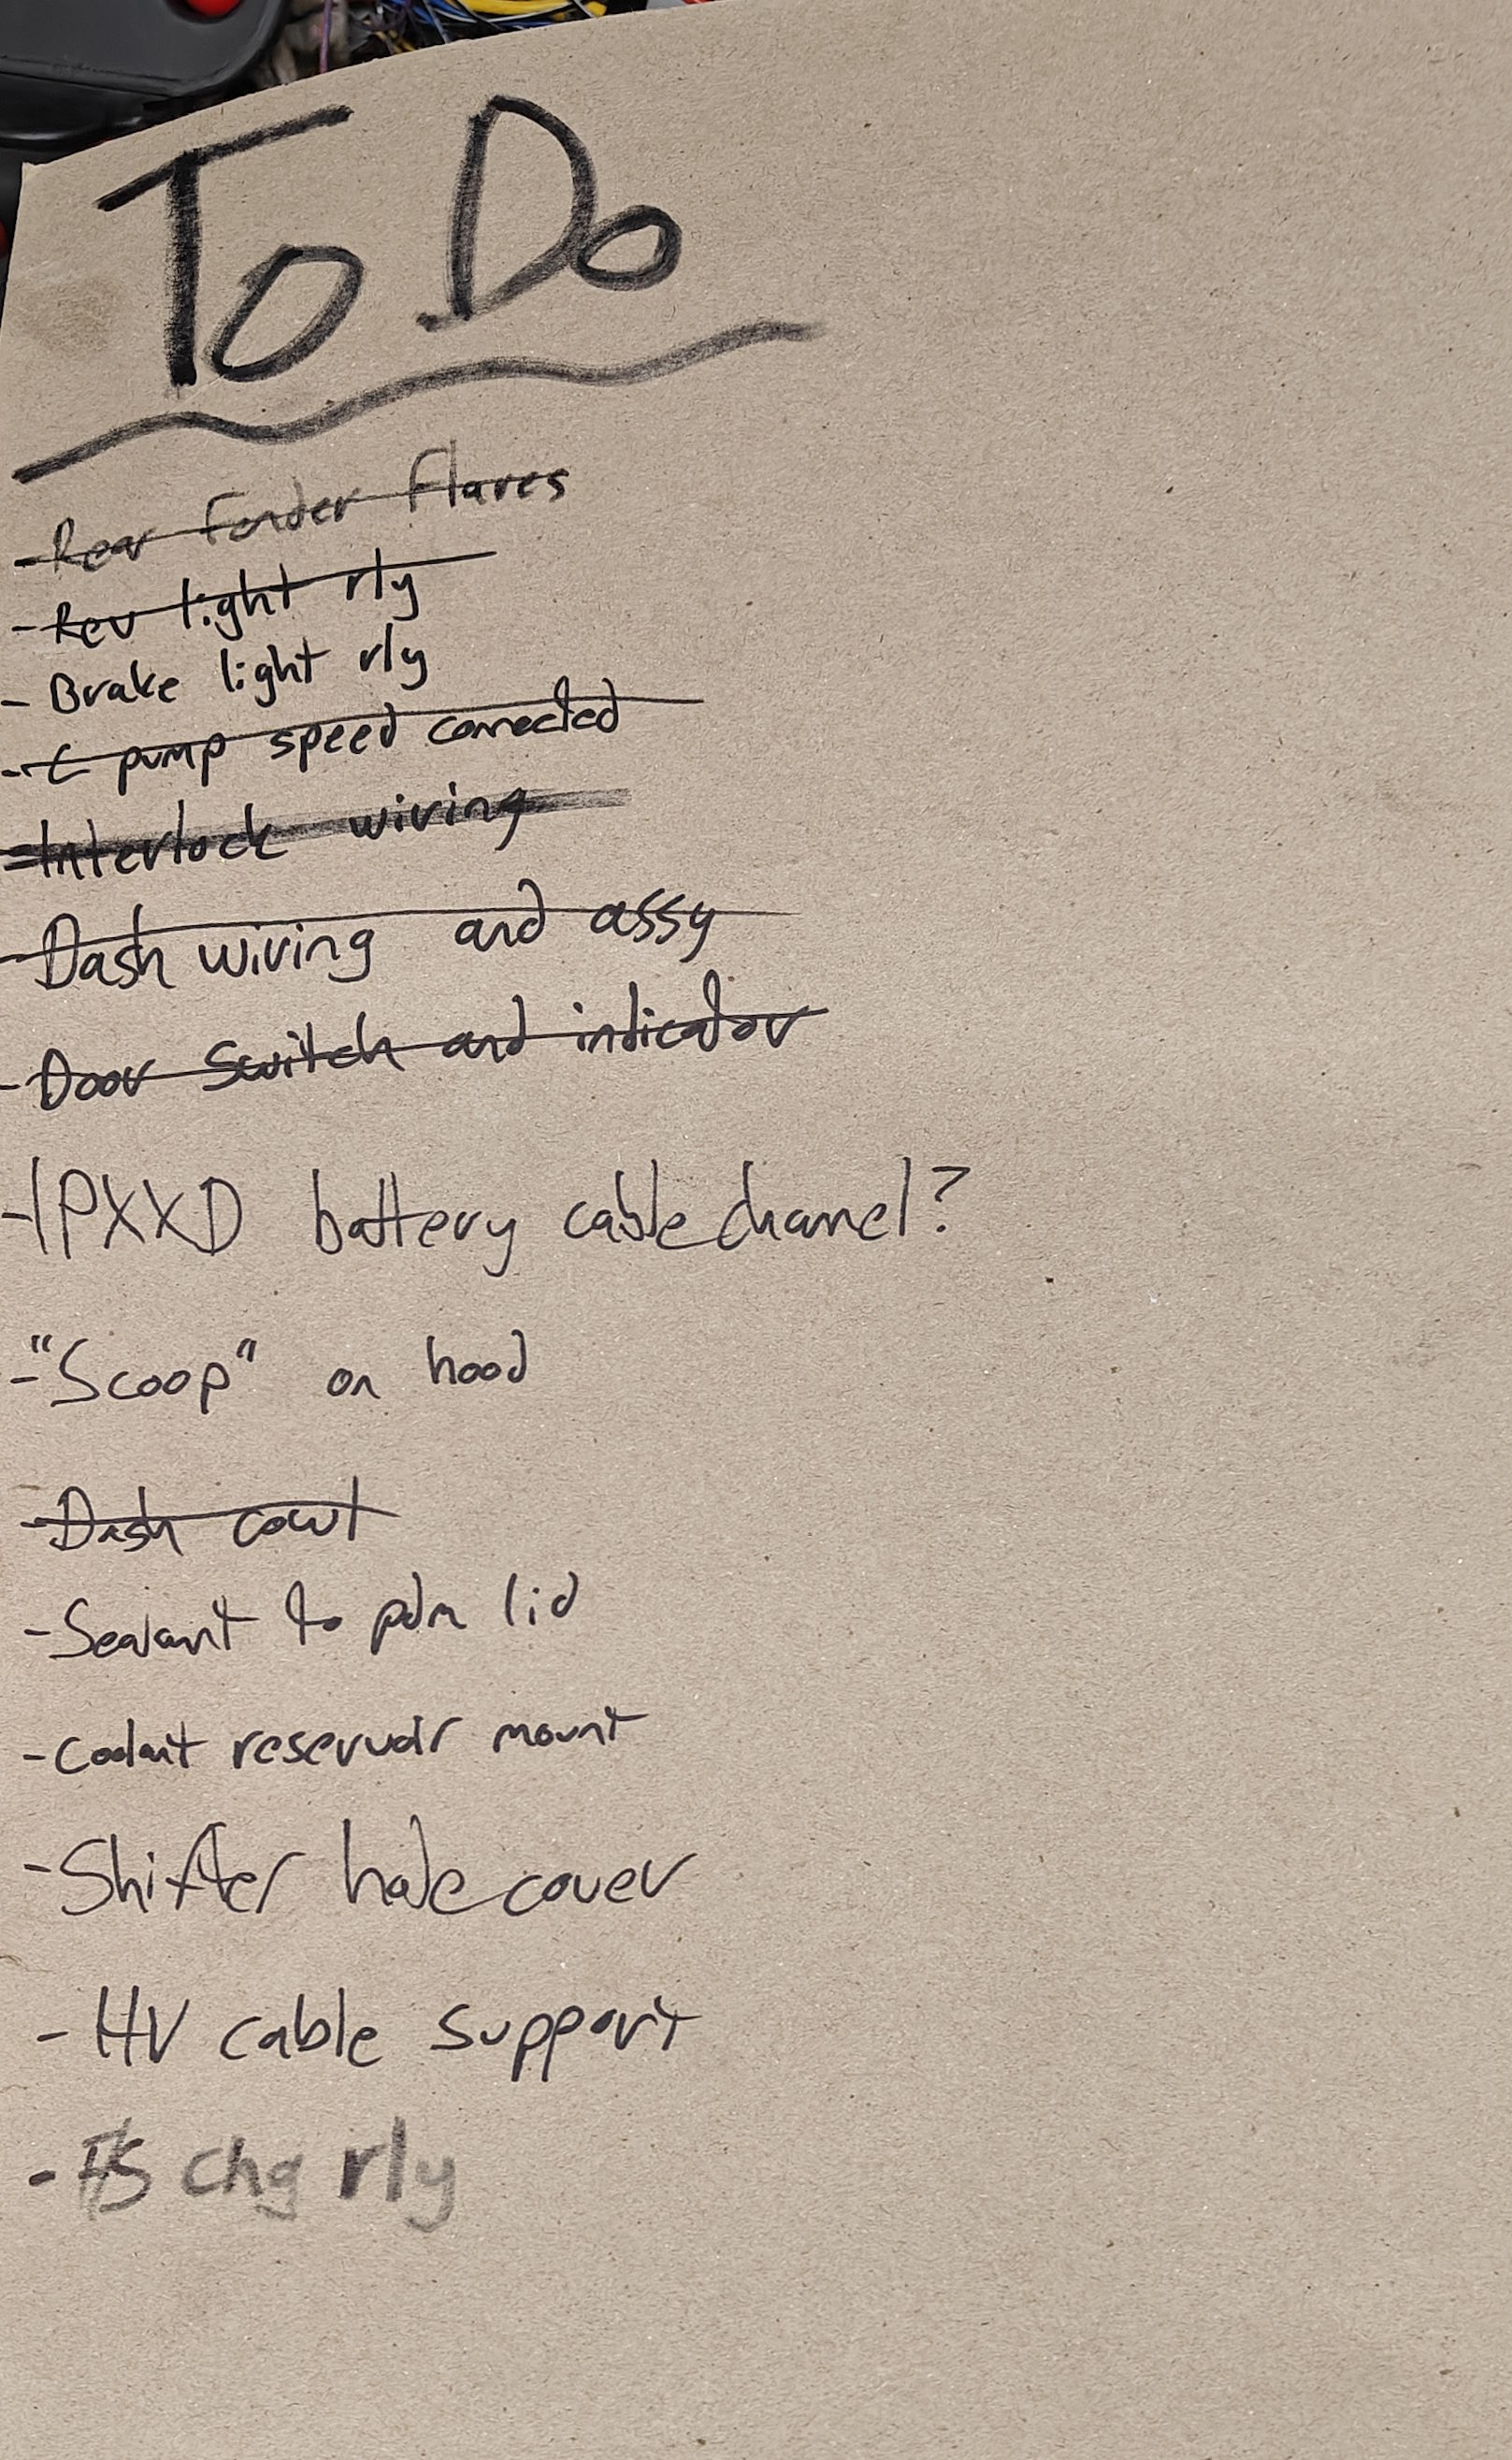 To Do
- Rear fender flares
- Rev light rly
- Brake light rly
- pump speed connected
- Interlock wiring
- Dash wiring and assy
- Door Switch and indicator
- IPXXD battery cable channel?
- "Scoop" on hood
- Dash cowl
- Sealant to pdm lid
- Coolant reservoir mount
- Shifter hole cover
- HV cable support
- chg rly